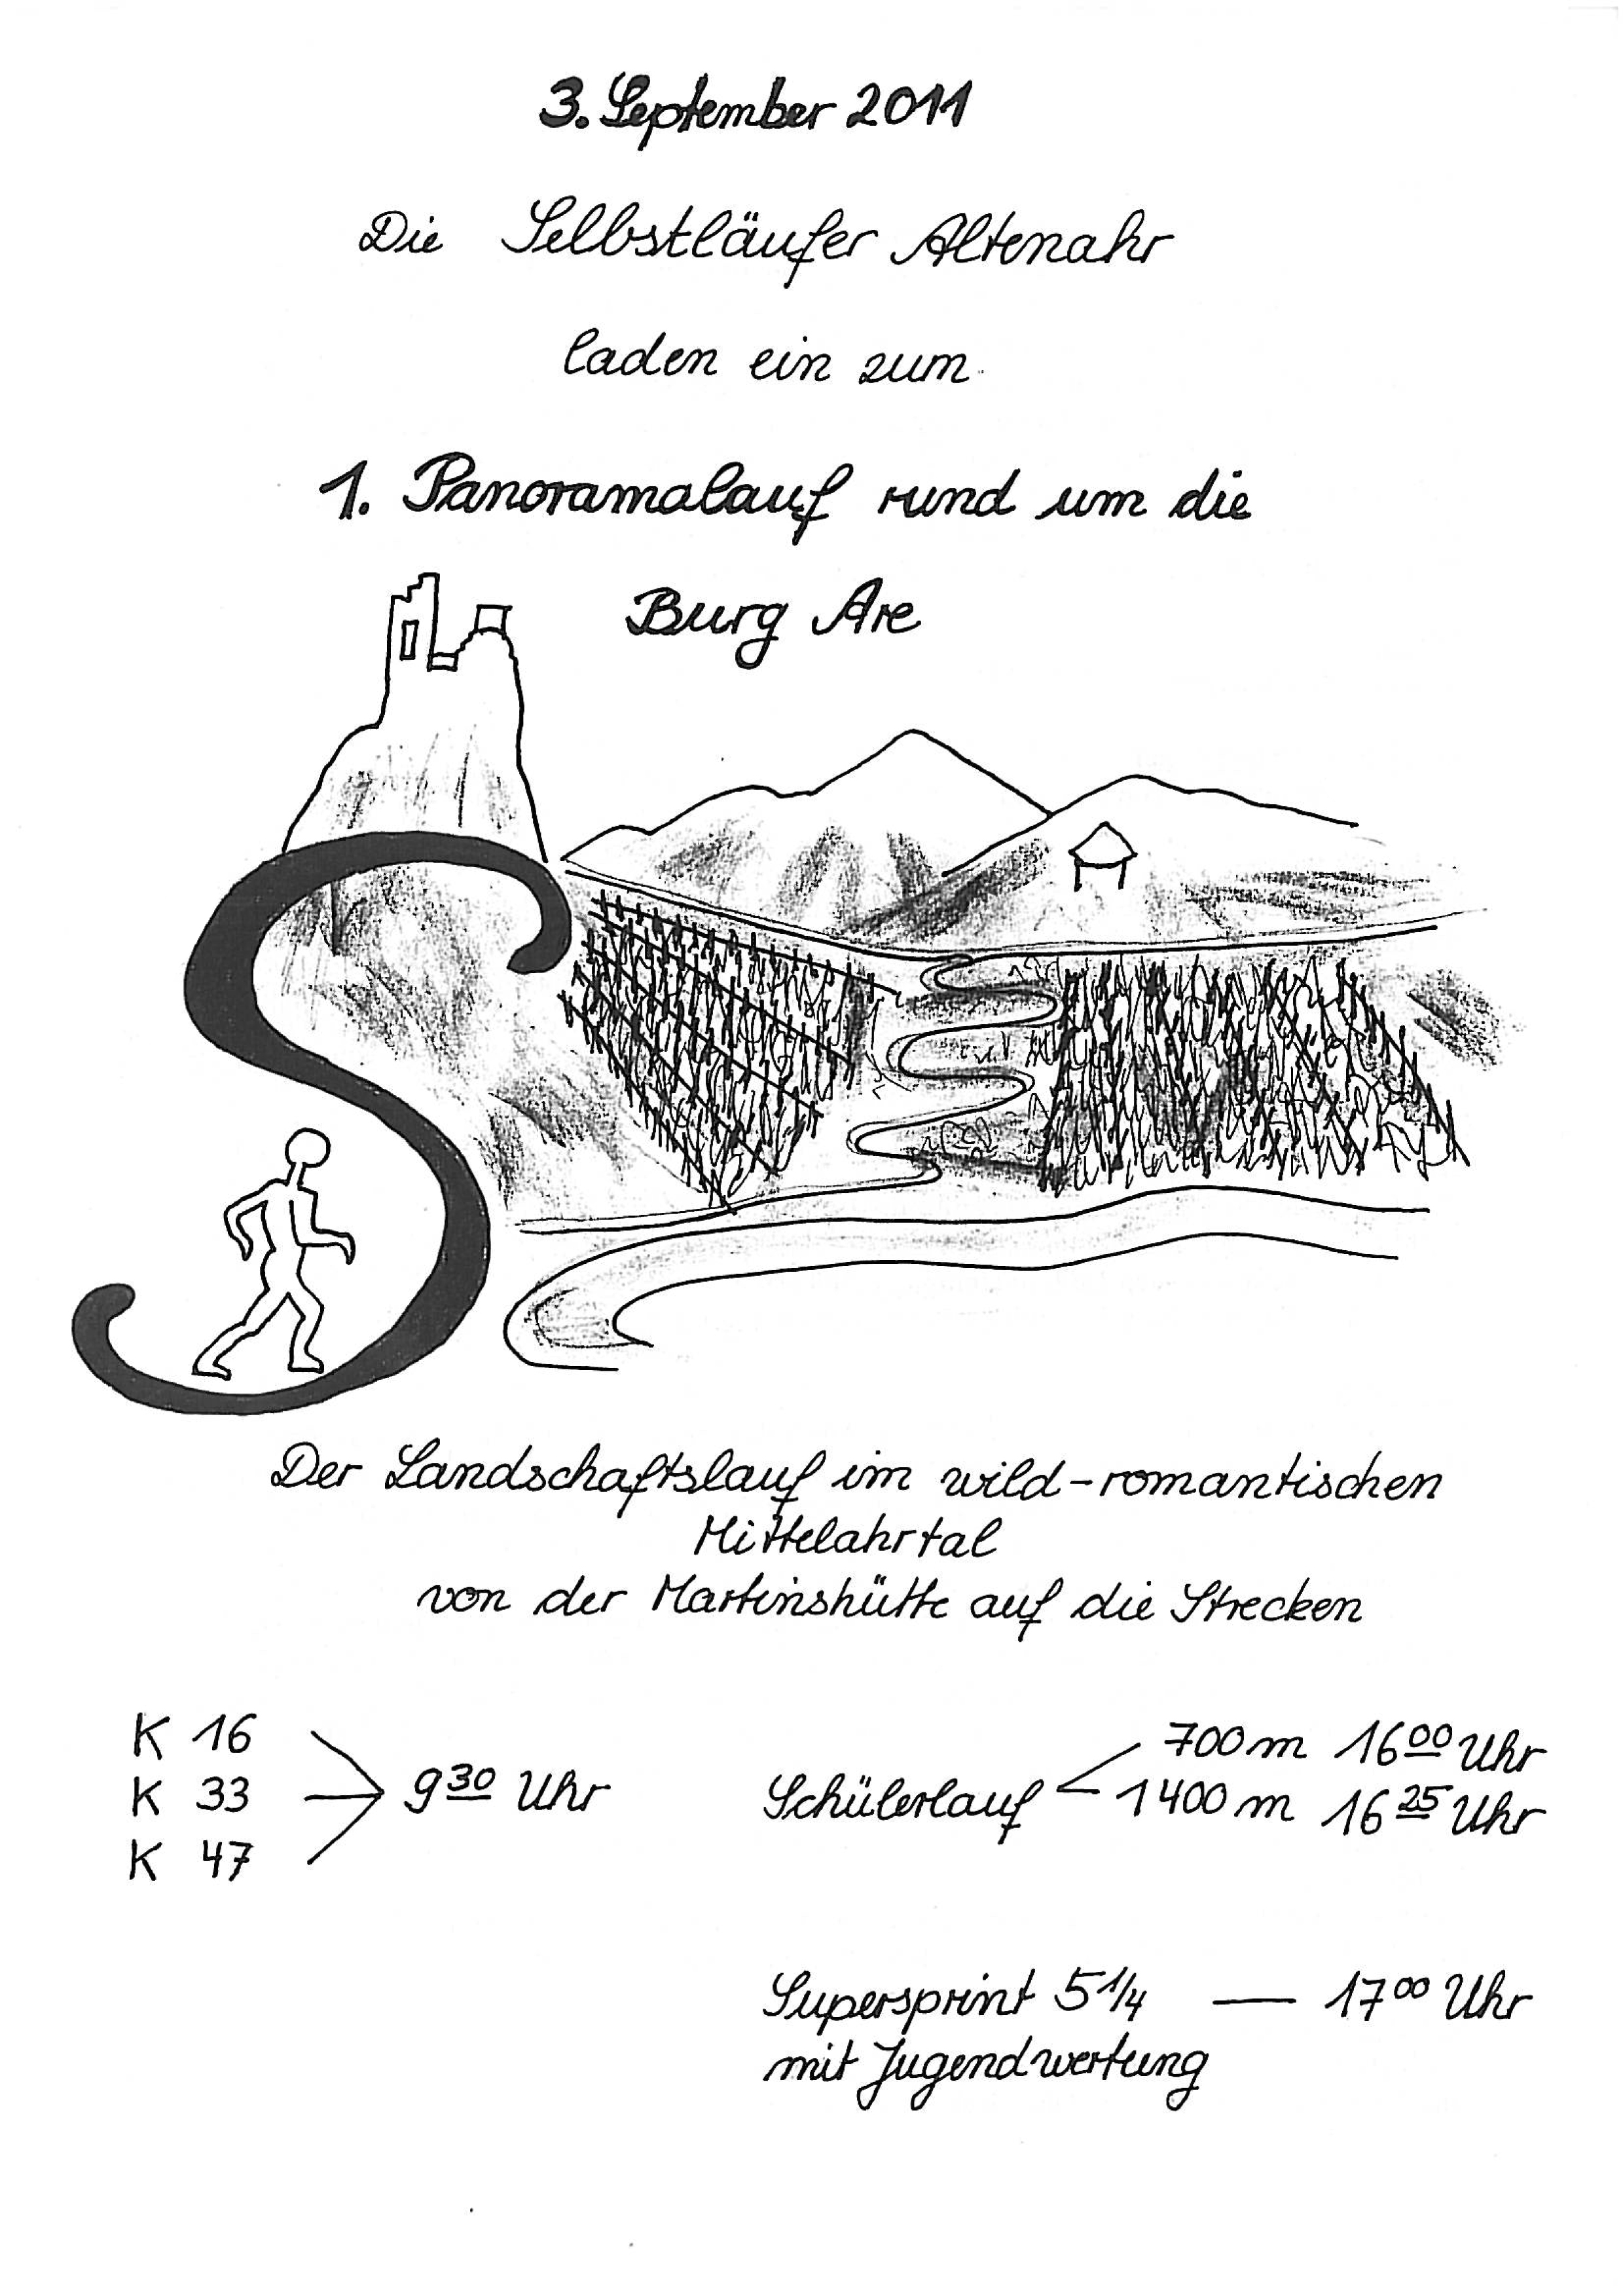 3. September 2011
Die Selbstläufer Altenahr
laden ein zum
1. Panoramalauf rund um die
Burg Are
Der Landschaftslauf im wild-romantischen
Mittelahrtal
von der Martinshütte auf die Strecken
K 16
K 33
K 47
9 30 Uhr
Schülerlauf
700 m 16 00 Uhr
1400 m 16 25 Uhr
Supersprint 5 1/4 — 17 00 Uhr
mit Jugendwertung